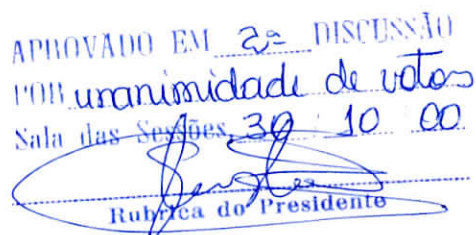 APROVADO EM 2ª DISCUSSÃO
POR unanimidade de votos
Sala das Sessões, 30 10 00
Rubrica do Presidente